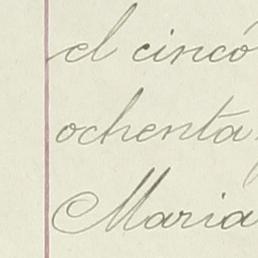 el cinco
ochenta
Maria